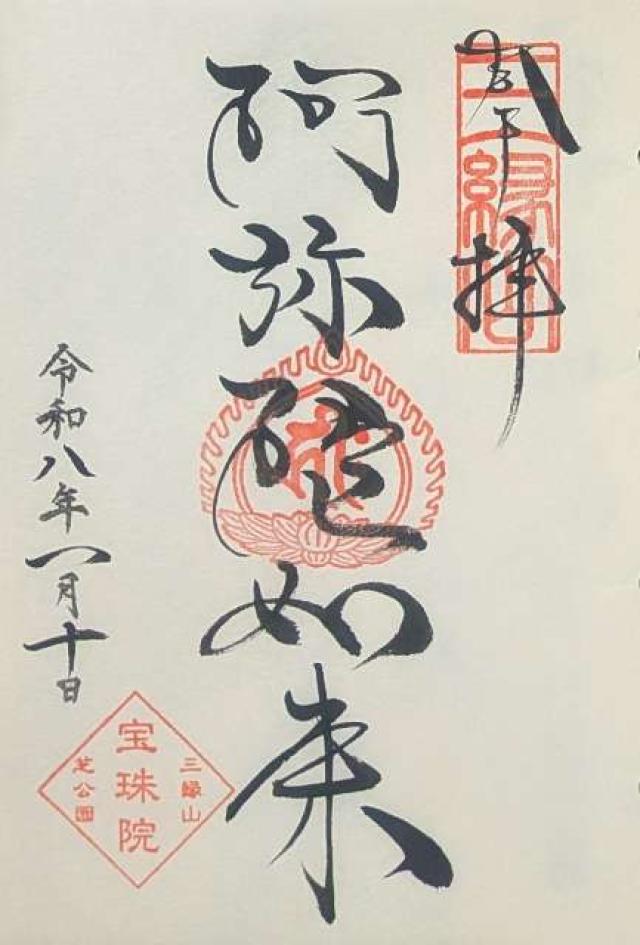 奉拝
三縁山
阿弥陀如来
令和八年一月十日
三縁山
宝珠院
芝公園